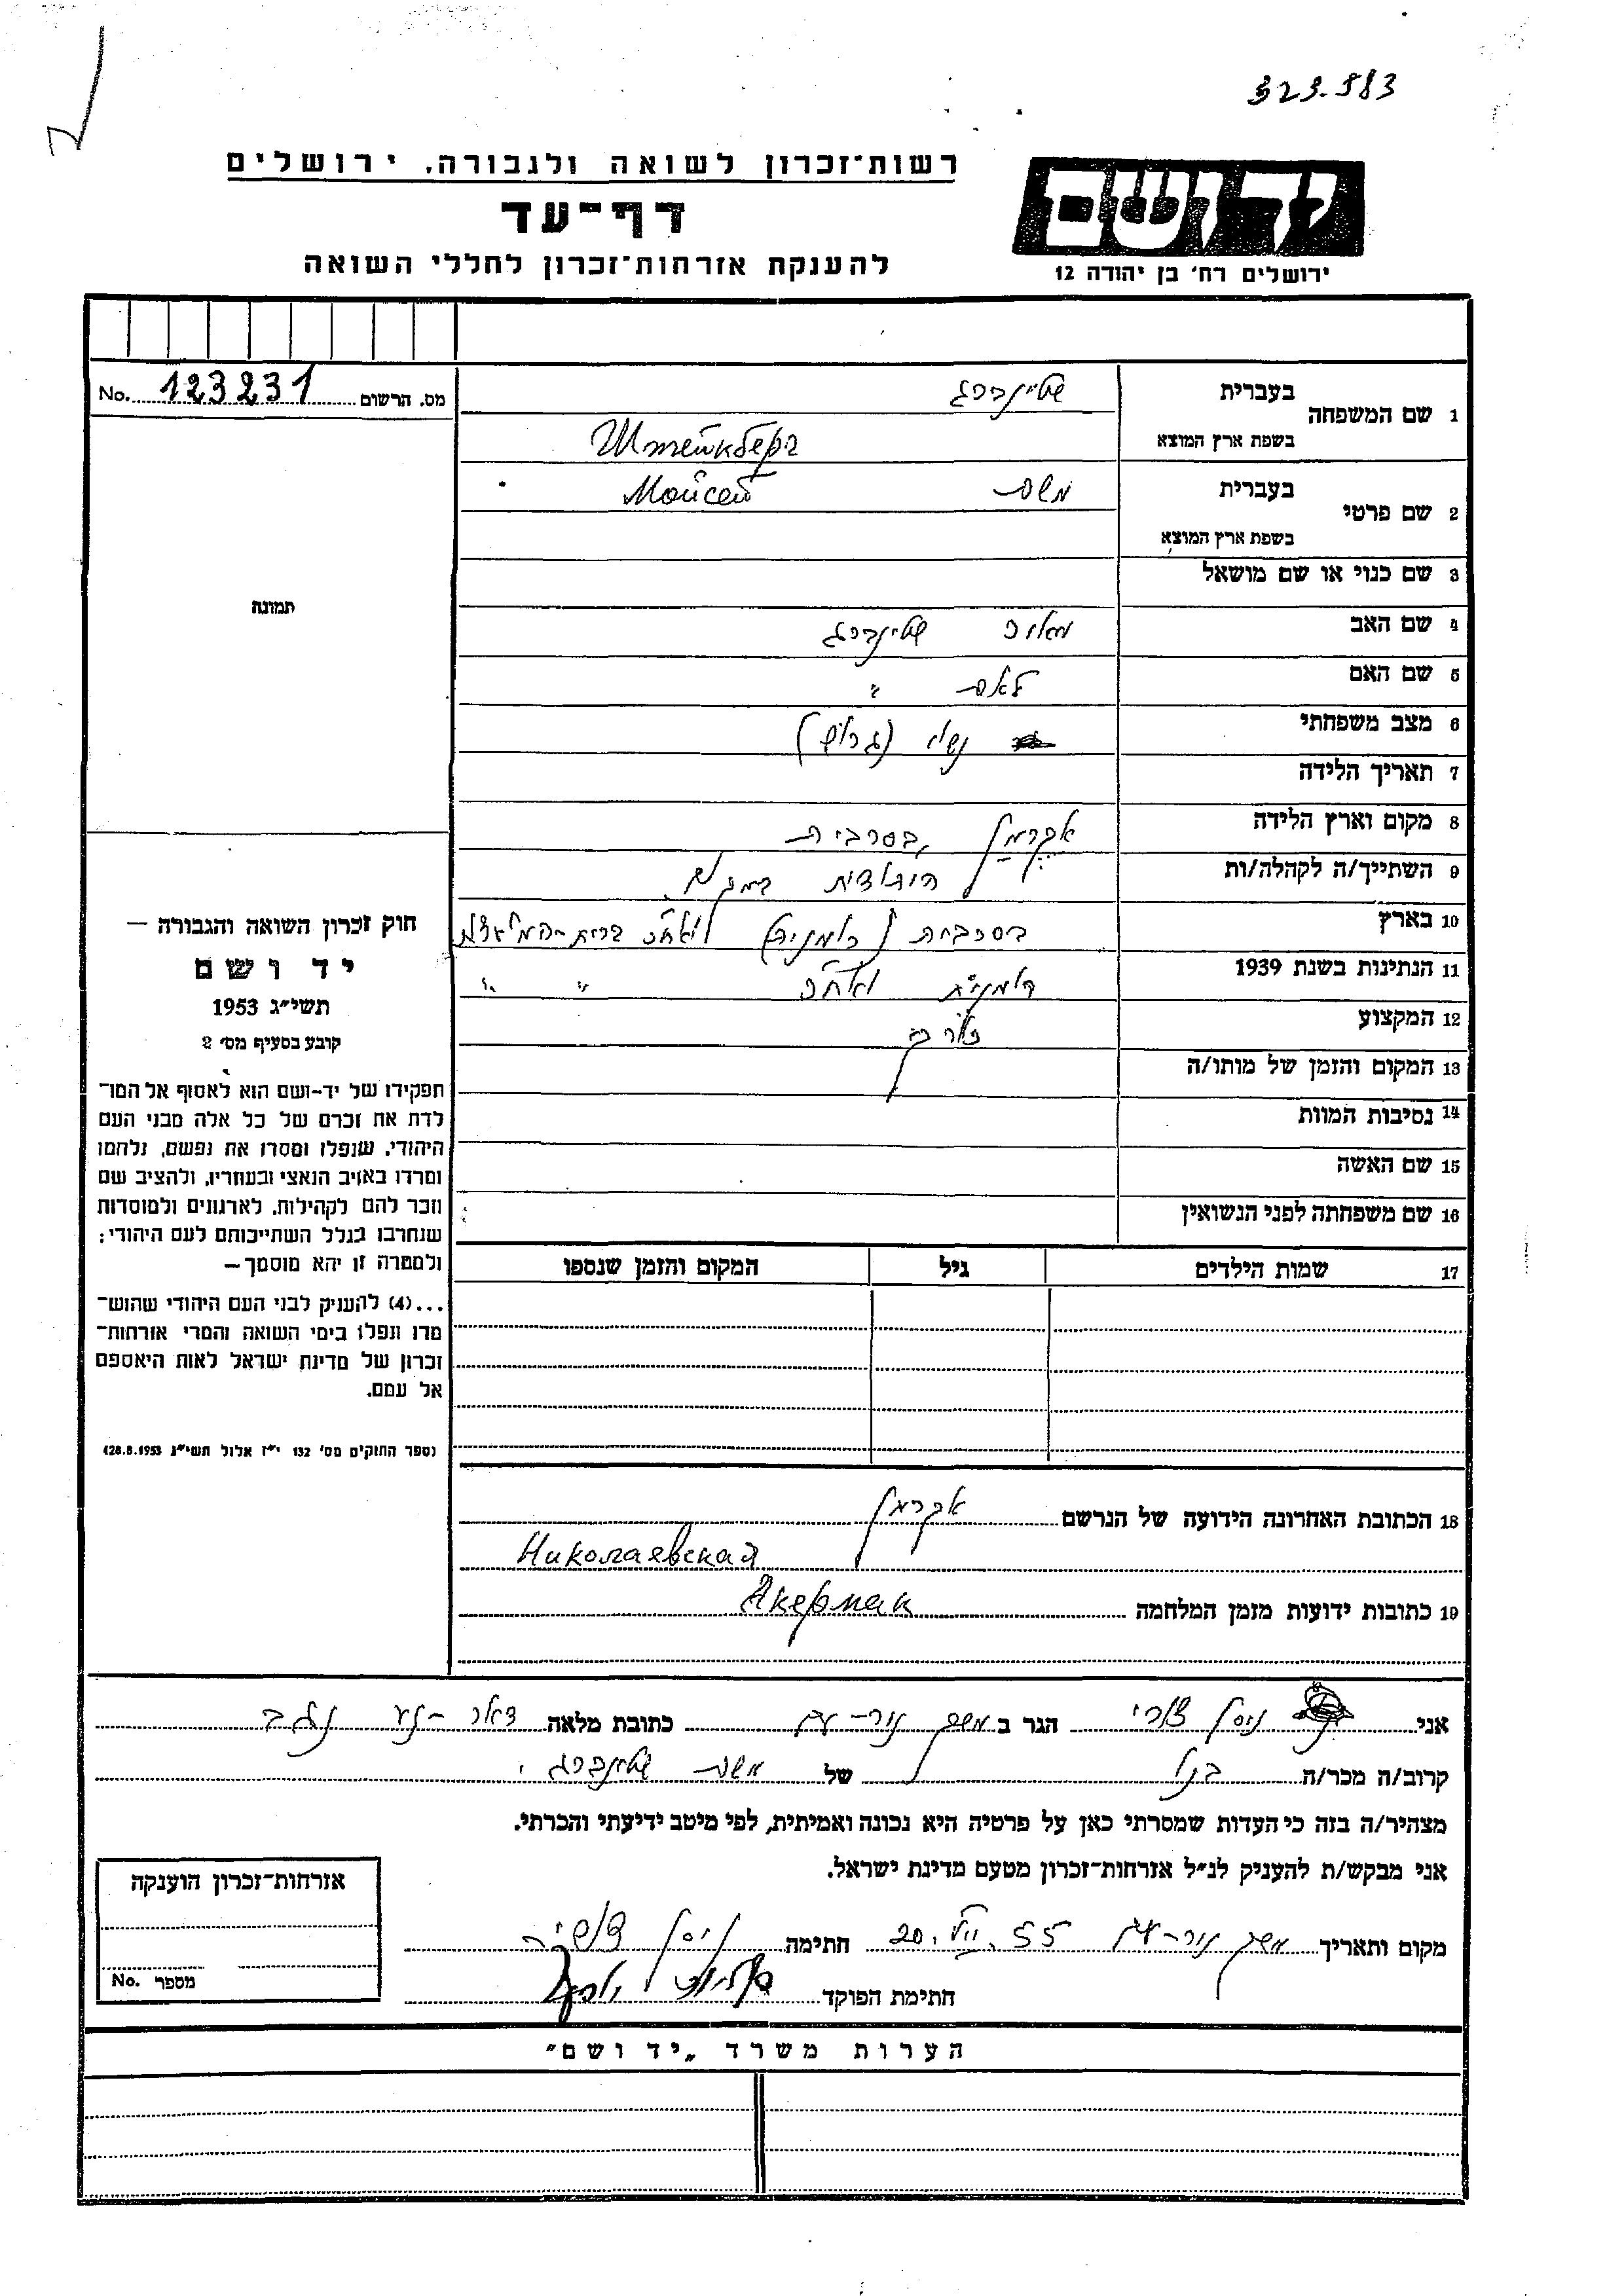 323.583
רשות־זכרון לשואה ולגבורה, ירושלים
דף־עד
להענקת אזרחות־זכרון לחללי השואה
יד ושם
ירושלים רח' בן יהודה 12
מס. הרשום 123231 No.
1 שם המשפחה
בעברית שטיינברג
בשפת ארץ המוצא Штейнберг
2 שם פרטי
בעברית משה Мойсей
בשפת ארץ המוצא
3 שם כנוי או שם מושאל
4 שם האב מאיר שטיינברג
5 שם האם לאה "
6 מצב משפחתי נשוי (גרוש)
7 תאריך הלידה
8 מקום וארץ הלידה אקרמן, בסרביה
9 השתייך/ה לקהלה/ות היהודית במקום
10 בארץ בסרביה (רומניה) ואח"כ ברית-המועצות
11 הנתינות בשנת 1939 רומנית ואח"כ " "
12 המקצוע
13 המקום והזמן של מותו/ה
14 נסיבות המוות
15 שם האשה
16 שם משפחתה לפני הנשואין
17 שמות הילדים גיל המקום והזמן שנספו
תמונה
חוק זכרון השואה והגבורה —
יד ושם
תשי״ג 1953
קובע בסעיף מס' 2
תפקידו של יד-ושם הוא לאסוף אל המו־
לדת את זכרם של כל אלה מבני העם
היהודי, שנפלו ומסרו את נפשם, נלחמו
ומרדו באויב הנאצי ובעוזריו, ולהציב שם
וזכר להם לקהילות, לארגונים ולמוסדות
שנחרבו בגלל השתייכותם לעם היהודי;
ולמטרה זו יהא מוסמך—
...(4) להעניק לבני העם היהודי שהוש־
מדו ונפלו בימי השואה והמרי אזרחות־
זכרון של מדינת ישראל לאות היאספם
אל עמם.
(ספר החוקים מס' 132 י״ז אלול תשי״ג 28.8.1953)
18 הכתובת האחרונה הידועה של הנרשם אקרמן
Николаевская
19 כתובות ידועות מזמן המלחמה Акерман
אני ניסן הגר ב משק ניר-עם כתובת מלאה דאר-נע נגב
קרוב/ה מכר/ה בנו של משה שטיינברג
מצהיר/ה בזה כי העדות שמסרתי כאן על פרטיה היא נכונה ואמיתית, לפי מיטב ידיעתי והכרתי.
אני מבקש/ת להעניק לנ״ל אזרחות־זכרון מטעם מדינת ישראל.
מקום ותאריך משק ניר-עם 20. 55 חתימה ניסן
חתימת הפוקד
אזרחות־זכרון הוענקה
מספר No.
הערות משרד „יד ושם"